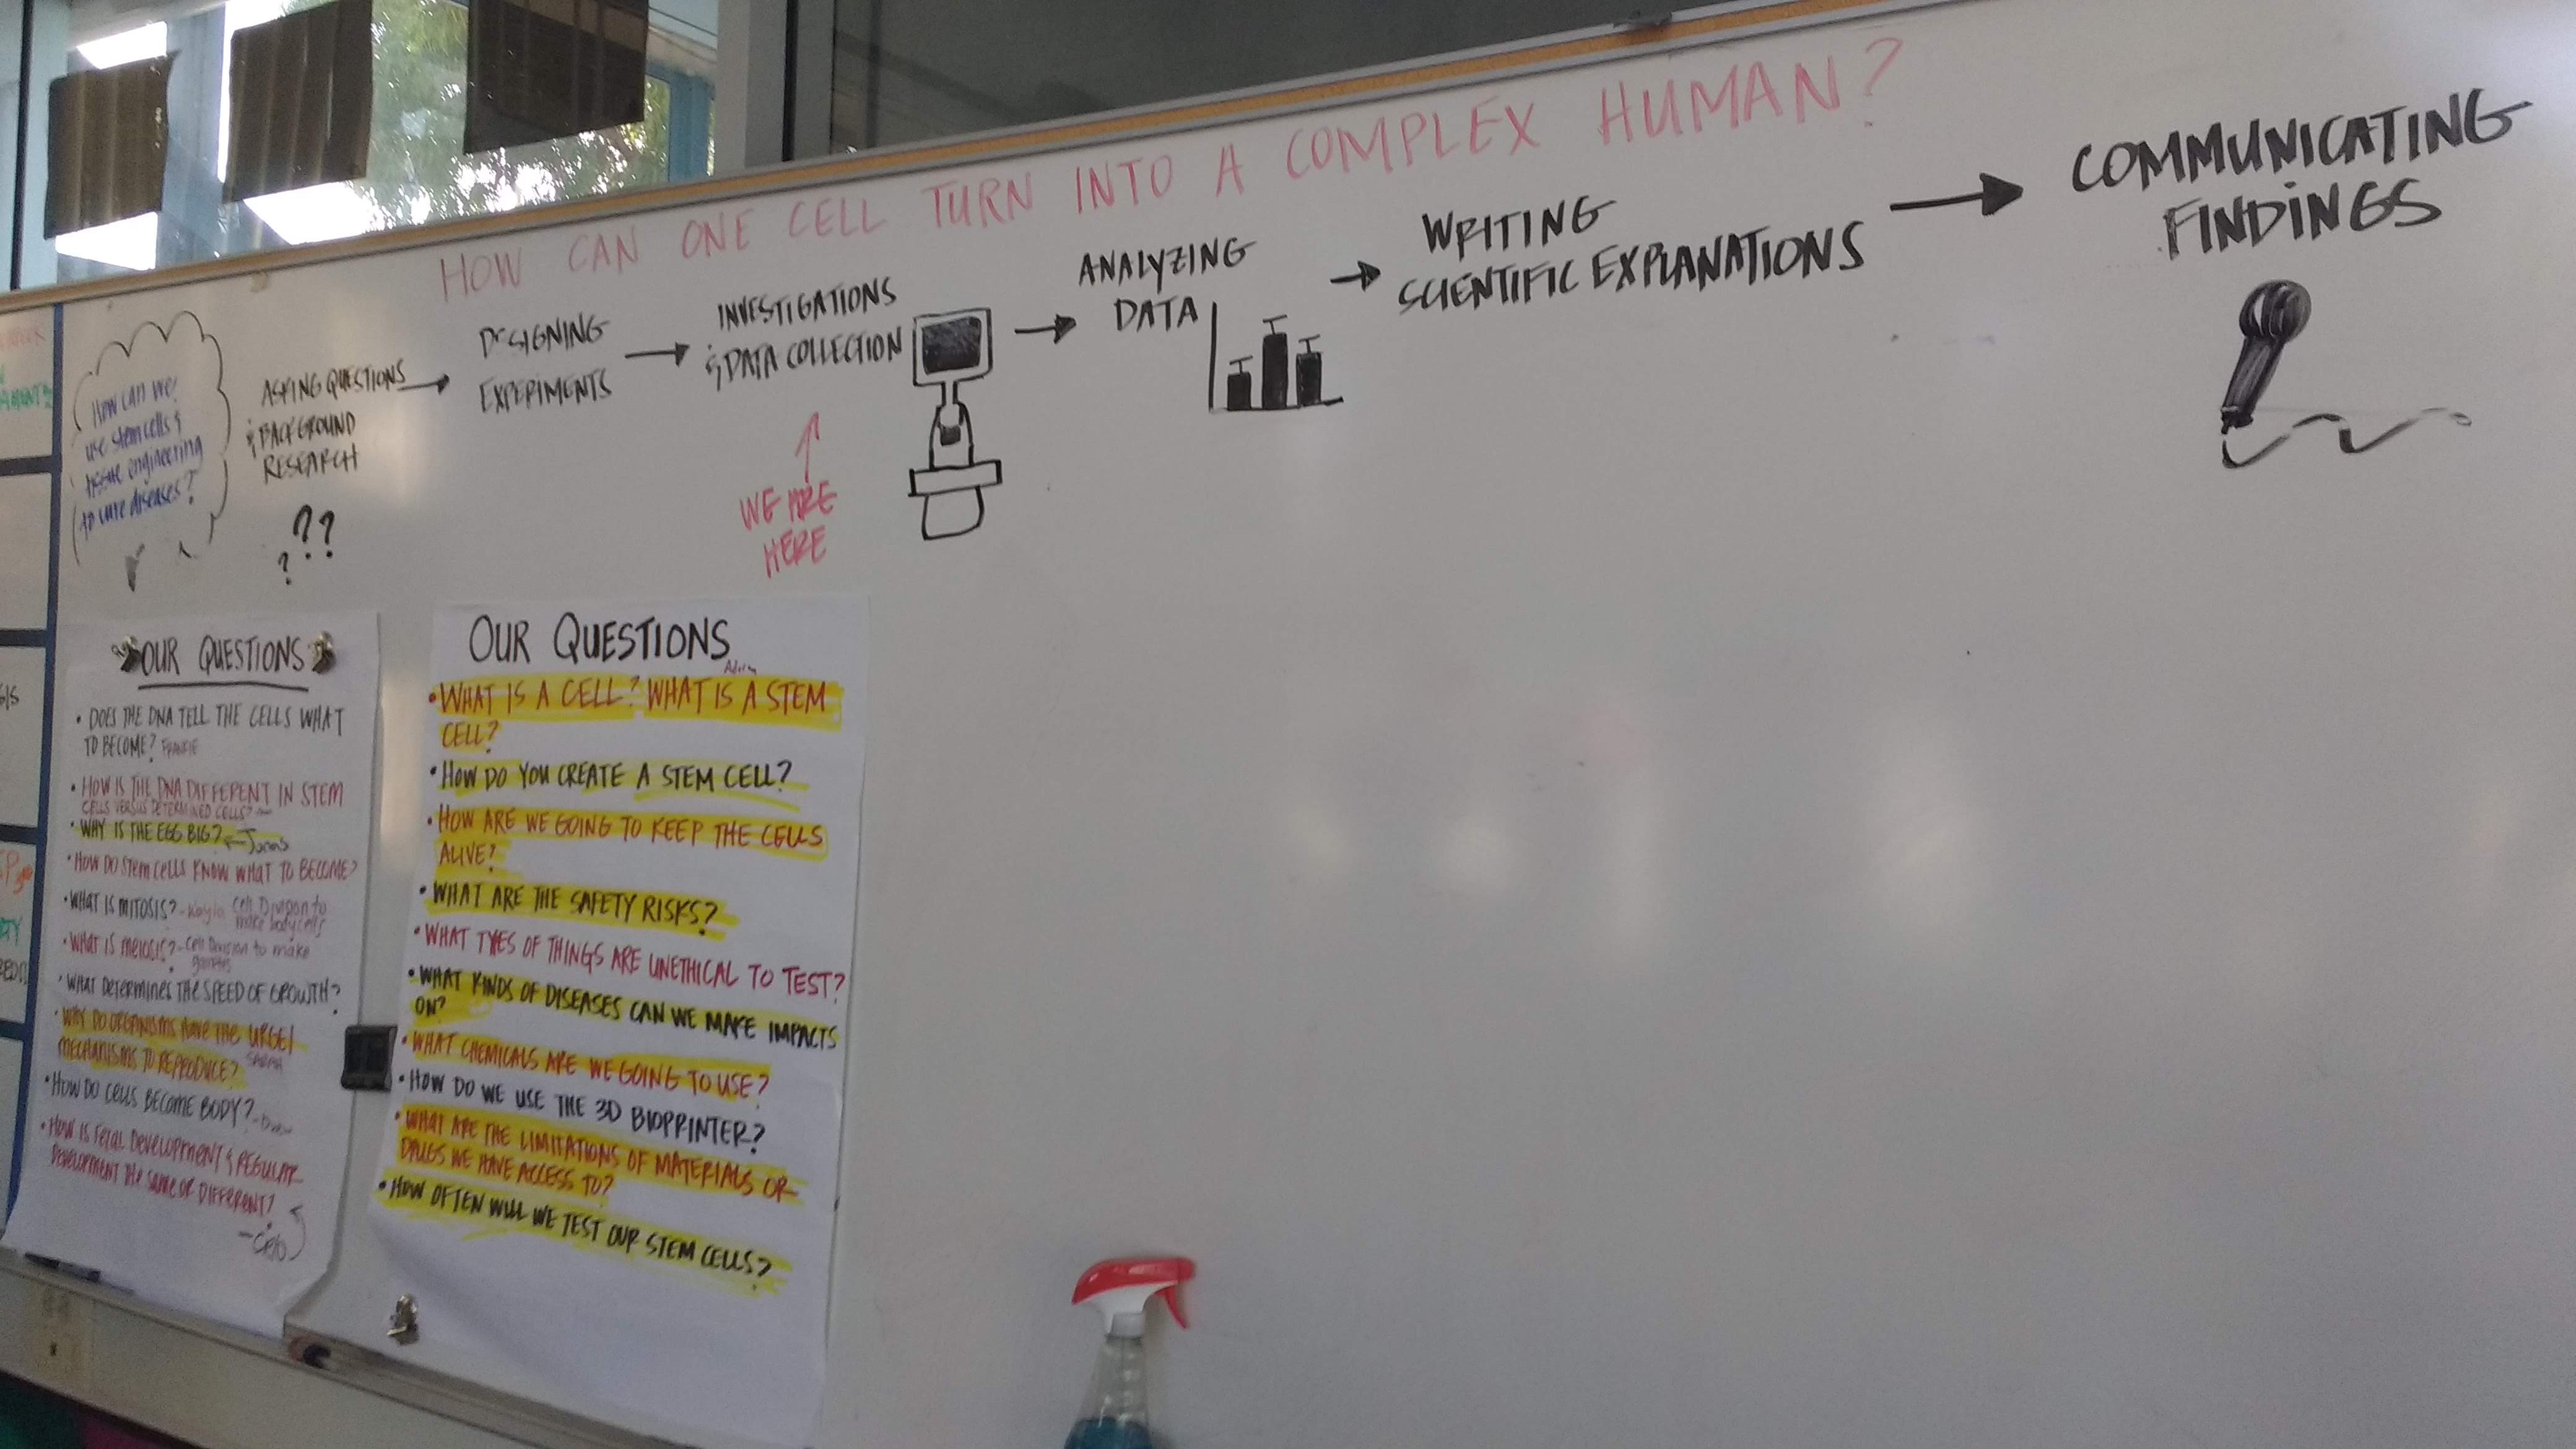 HOW CAN ONE CELL TURN INTO A COMPLEX HUMAN?
How can we
use stem cells &
tissue engineering
to cure diseases?
ASKING QUESTIONS
& BACKGROUND
RESEARCH
???
DESIGNING
EXPERIMENTS
INVESTIGATIONS
& DATA COLLECTION
WE ARE
HERE
ANALYZING
DATA
WRITING
SCIENTIFIC EXPLANATIONS
COMMUNICATING
FINDINGS
OUR QUESTIONS
• DOES THE DNA TELL THE CELLS WHAT
TO BECOME? FRANKIE
• HOW IS THE DNA DIFFERENT IN STEM
CELLS VERSUS DETERMINED CELLS?
• WHY IS THE EGG BIG? ← Jonas
• HOW DO STEM CELLS KNOW WHAT TO BECOME?
• WHAT IS MITOSIS? - Kayla Cell Division to
make body cells
• WHAT IS MEIOSIS? - Cell Division to make
gametes
• WHAT DETERMINES THE SPEED OF GROWTH?
• WHY DO ORGANISMS HAVE THE URGE/
MECHANISMS TO REPRODUCE? SARAH
• HOW DO CELLS BECOME BODY?
• HOW IS FETAL DEVELOPMENT & REGULAR
DEVELOPMENT THE SAME OR DIFFERENT?
OUR QUESTIONS
• WHAT IS A CELL? WHAT IS A STEM
CELL?
• HOW DO YOU CREATE A STEM CELL?
• HOW ARE WE GOING TO KEEP THE CELLS
ALIVE?
• WHAT ARE THE SAFETY RISKS?
• WHAT TYPES OF THINGS ARE UNETHICAL TO TEST?
• WHAT KINDS OF DISEASES CAN WE MAKE IMPACTS
ON?
• WHAT CHEMICALS ARE WE GOING TO USE?
• HOW DO WE USE THE 3D BIOPRINTER?
• WHAT ARE THE LIMITATIONS OF MATERIALS OR
DRUGS WE HAVE ACCESS TO?
• HOW OFTEN WILL WE TEST OUR STEM CELLS?